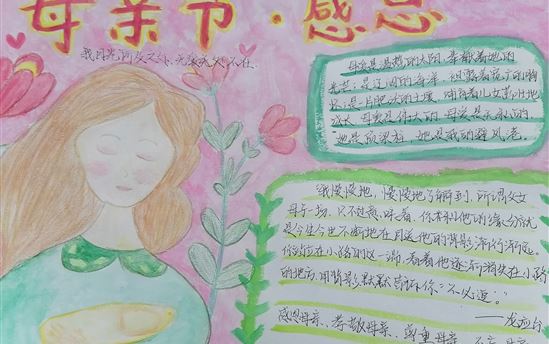 母亲节·感恩
我目光所及之外,无家
不在.
母亲是温暖的太阳,奉献着她的
光芒;是辽阔的海洋,袒露着宽广的胸
怀;是片肥沃的土壤,哺育着儿女茁壮地
成长.母亲是伟大的,母亲是永恒的
她是顶梁柱,她是我的避风港。
我慢慢地,慢慢地了解到,所谓父女
母子一场,只不过意味着,你和他的缘分就
是今生今世不断地在目送他的背影渐行渐远。
你站在小路的这一端,看着他逐渐消失在小路
的地方,用背影默默告诉你“不必追”。
——龙应台
感恩母亲、孝敬母亲、尊重母亲、不忘母亲